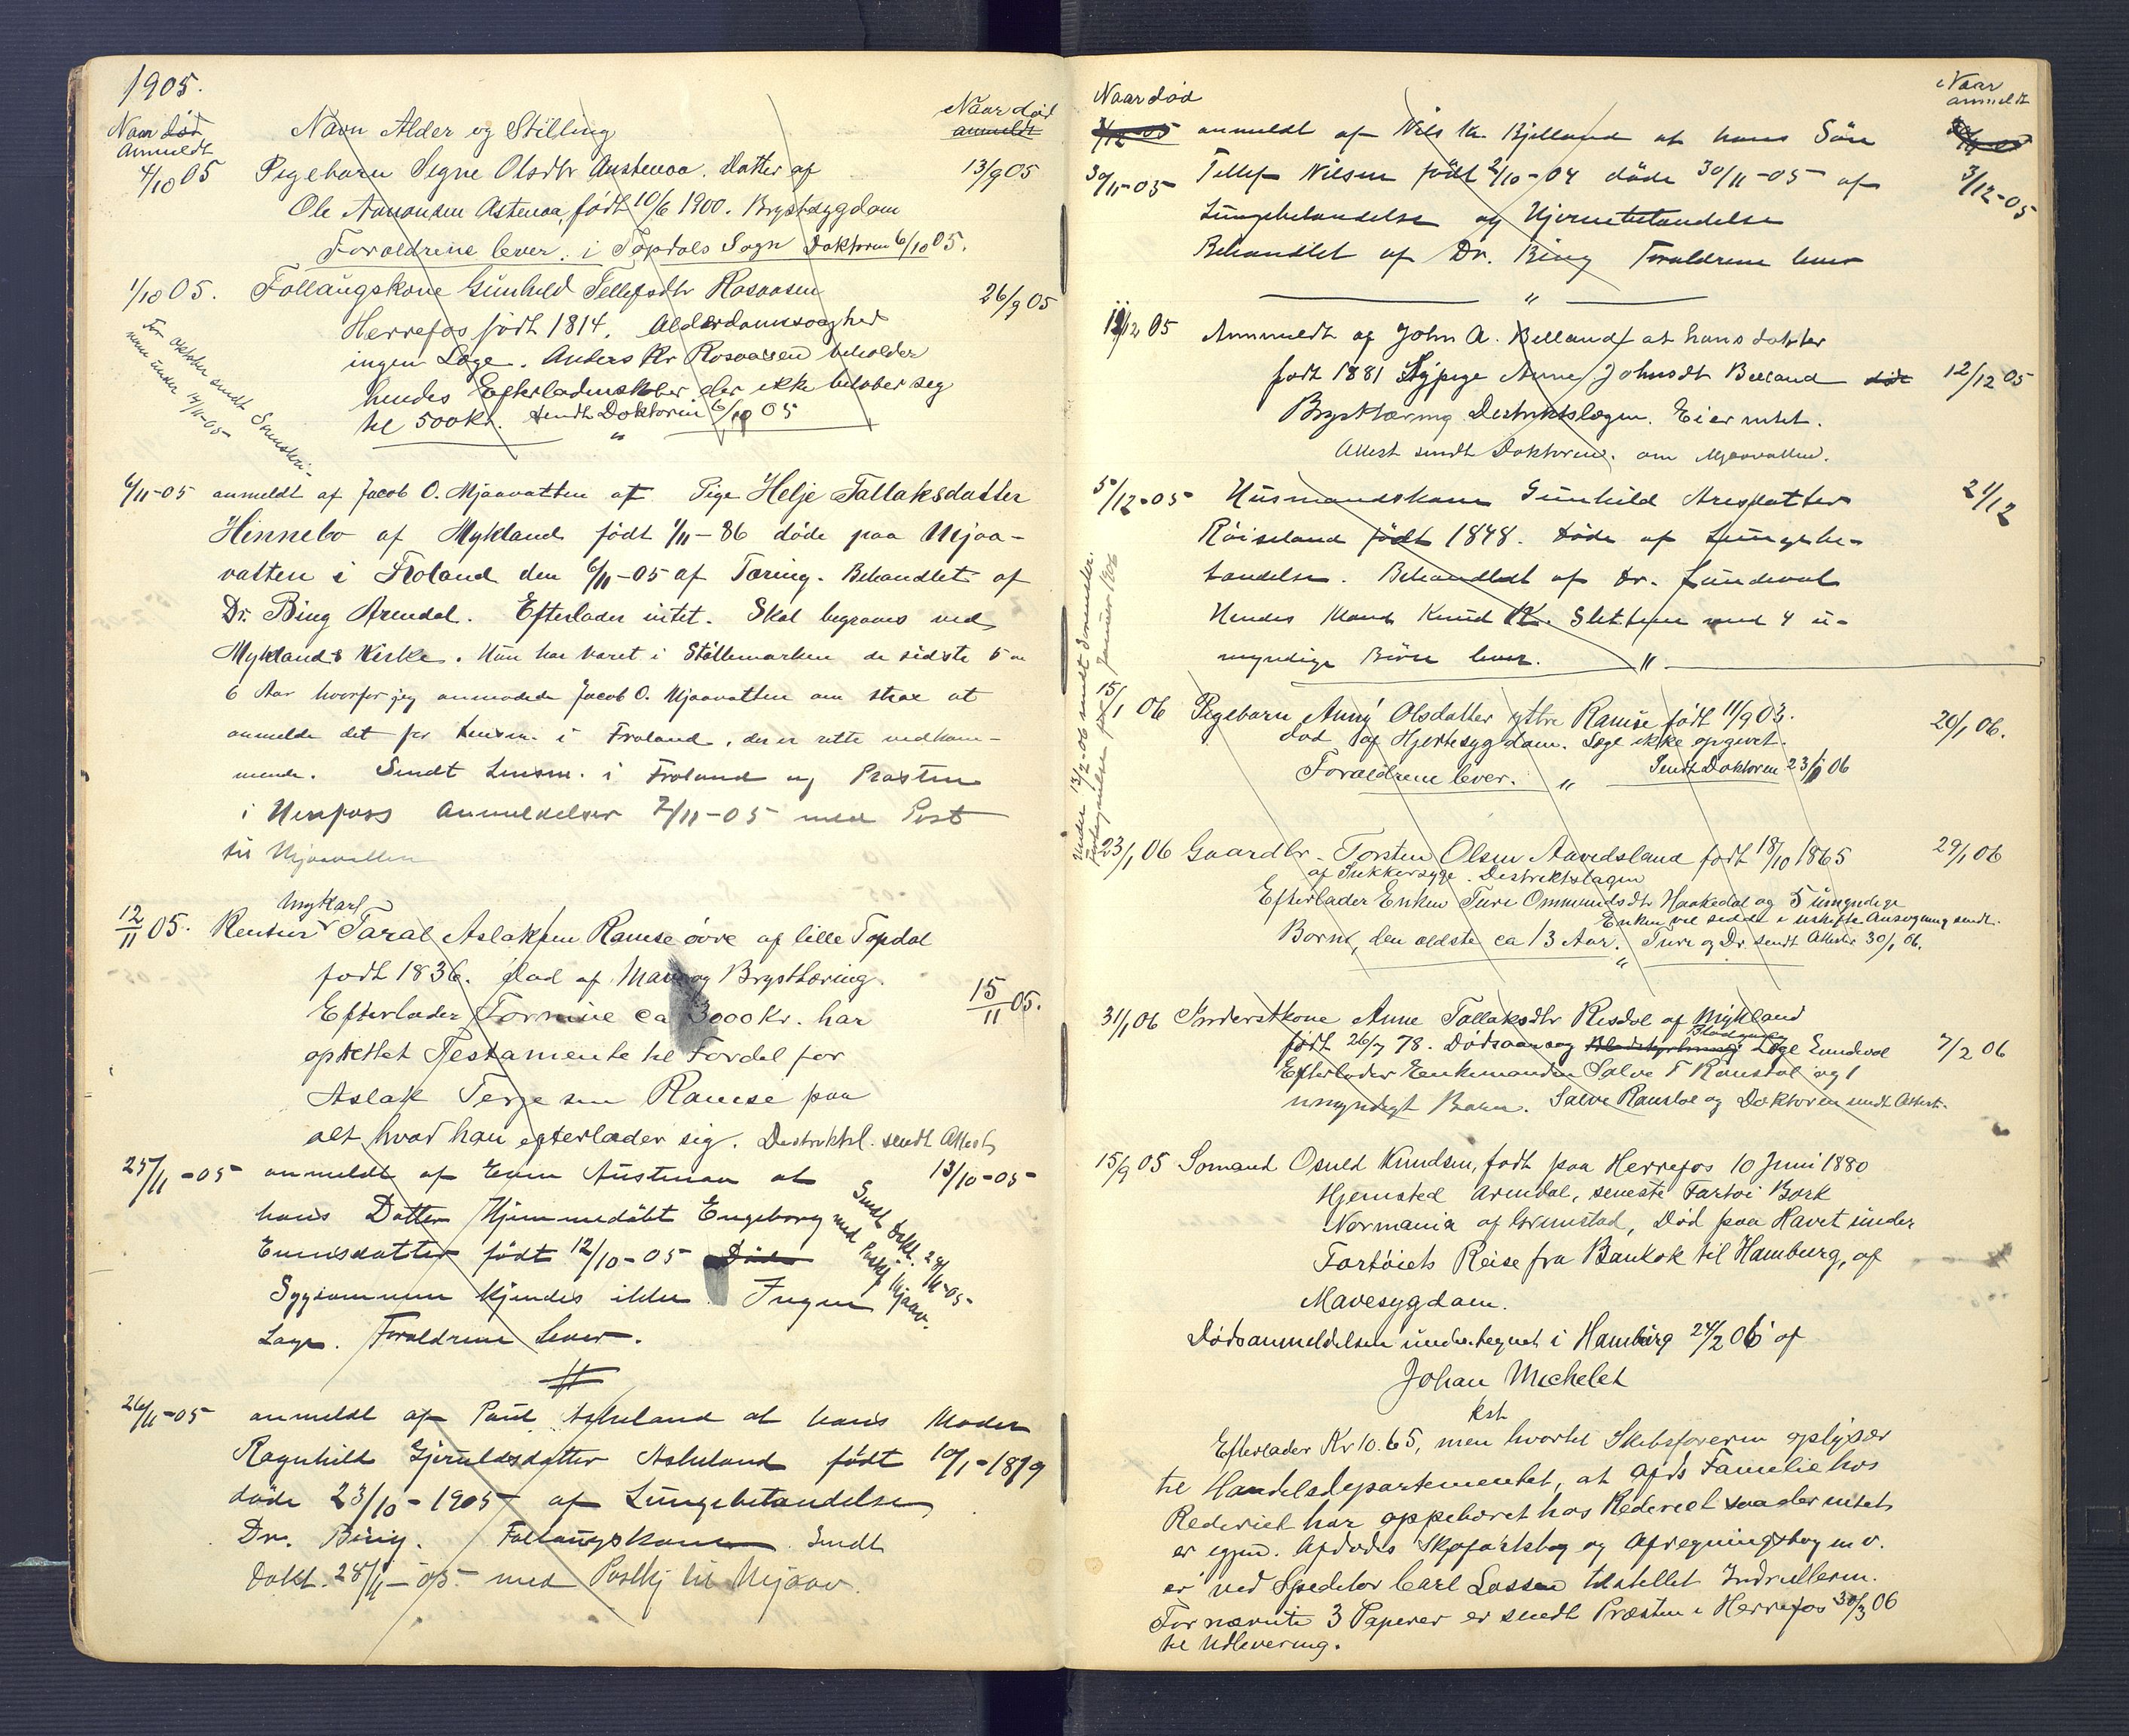 1905.
Naar død Anmeldt
Navn Alder og Stilling
Naar død anmeldt
4/10 05 Pigebarn Signe Olsdtr Austenaa. Datter af 13/9 05
Ole Aanonsen Astenaa, født 10/6 1900. Brystsygdom
Forældrene lever. i Topdals Sogn Doktoren 6/10 05.
1/10 05. Follaugskone Gunhild Tellefsdtr Rosaasen 26/9 05
Herrefos født 1814. Alderdomssvaghed
ingen Læge. Anders Kr Rosaasen beholder
hendes Efterladenskaber der ikke beløber seg
til 500 kr. sendt Doktoren 6/10 05
"
For oktober sendt Sorenskri-
veren under 14/11-05
6/11-05 anmeldt af Jacob O. Mjaavatten at Pige Helje Tallaksdatter
Hinnebo af Mykland født 1/11-86 døde paa Mjaa-
vatten i Froland den 6/11-05 af Tæring. Behandlet af
Dr. Bing Arendal. Efterlader intet. Skal begraves ved
Myklands Kirke. Hun har været i Støllemarken de sidste 5 a
6 Aar hvorfor jeg anmodede Jacob O. Mjaavatten om strax at
anmelde det for Lensm. i Froland, der er rette vedkom-
mende. Sendt Lensm. i Froland og Præsten
i Herefoss Anmeldelser 7/11-05 med Post
til Mjaavatten
12/11 05. Rentier Ungkarl Taral Aslaksen Ramse øvre af lille Topdal
født 1836. død af Mave og Brysttæring. 15/11 05.
Efterlader Formue ca 3000 Kr. har
oprettet Testamente til Fordel for
Aslak Terjesen Ramse paa
alt hvad han efterlader sig. Distriktsl. sendt Attest
25/11-05 anmeldt af Even Austenaa at 13/10-05
hans Datter Hjemmedøbt Engeborg
Evensdatter født 12/10-05 Døde
Sygdommen kjendes ikke. Ingen
Læge. Forældrene lever.
Sendt Dokt. 28/11-05
med Postkj Mjaav.
26/11-05 anmeldt af Paul Askeland at hans Moder
Ragnhild Gjeruldsdatter Askeland født 10/1-1819
døde 23/10-1905 af Lungebetændelse
Dr. Bing. Follaugskone. Sendt
Dokt. 28/11-05 med Postkj til Mjaav.
Naar død
Naar anmeldt
3/12-05 anmeldt af Nils K. Kjelland at hans Søn
30/11-05 Tellef Nilsen født 2/10-04 døde 30/11-05 af 3/12-05
Lungebetændelse og Hjernebetændelse
Behandlet af Dr. Bing Forældrene lever
"
12/12 05 Anmeldt af John A. Belland at hans datter
født 1881 Sypige Anne Johnsdt Belland død 12/12 05
Brysttæring Distriktslægen. Eier intet.
Attest sendt Doktoren. om Mjaavatten.
5/12-05 Husmandskone Gunhild Aresdatter 21/12
Røiseland født 1848. Døde af Lungebe-
tændelse. Behandlet af Dr. Lundeval
Hendes Mand Knud K. Sletten med 4 u-
myndige Børn lever. "
Under 13/2-06 sendt Sorenskr.
Fortegnelse for Januar 1906
15/1 06 Pigebarn Anny Olsdatter yttre Ramse født 11/9 03. 20/1 06.
død af Hjertesygdom. Læge ikke opgivet.
Forældrene lever. " Sendt Doktoren 23/1 06
23/1 06 Gaardbr. Torsten Olsen Aavedsland født 18/10 1865 29/1 06
af Sukkersyge. Distriktslægen
Efterlader Enken Turi Ommundsdtr Haakedal og 5 umyndige
Enken vil sidde i uskifte Ansøgning sendt.
Børn, den ældste ca 13 Aar. Turi og Dr. sendt Attester 30/1 06.
"
31/1 06 Inderstkone Anne Tallaksdtr Risdal af Mykland
født 26/7 78. Dødsaarsag Læge Lundevol 7/2 06
Efterlader Enkemanden Salve T Ramstøl og 1
umyndigt Barn. Salve Ramstøl og Doktoren sendt Attest.
15/9 05 Sømand Osuld Knudsen, født paa Herrefos 10 Juni 1880
Hjemsted Arendal, seneste Fartøi Bark
Normania af Grimstad, Død paa Havet under
Fartøiets Reise fra Bankok til Hamburg, af
Mavesygdom.
Dødsanmeldelsen undertegnet i Hamburg 24/2 06 af
Johan Michelet
kst
Efterlader Kr 10.65, men hvortil Skibsføreren oplyser
til Handelsdepartementet, at Afds Familie hos
Rederiet har oppebaaret hos Rederiet saa der intet
er igjen. Afdødes Skøfartsbog og Afregningsbog m v.
er ved Speditør Carl Lassen tilstillet Indrulleren.
Fornævnte 3 Papirer er sendt Præsten i Herrefos 30/3 06
til Udlevering.